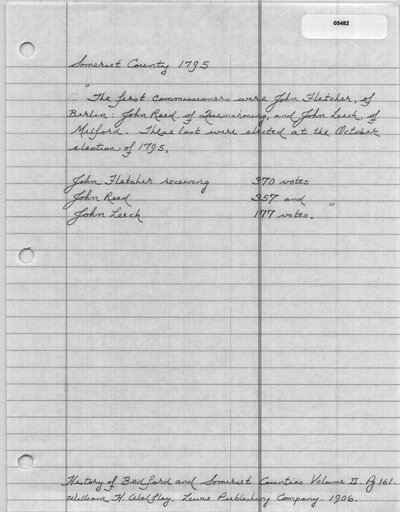 05482
Somerset County 1795
"The first Commissioners were John Fletcher, of
Berlin: John Reed, of Quemahoning, and John Leech, of
Milford. These last were elected at the October
election of 1795.
John Fletcher receiving 370 votes
John Reed 357 and
John Leech 177 votes."
History of Bedford and Somerset Counties Volume II. Pg 161.
William H. Welfley. Lewis Publishing Company. 1906.